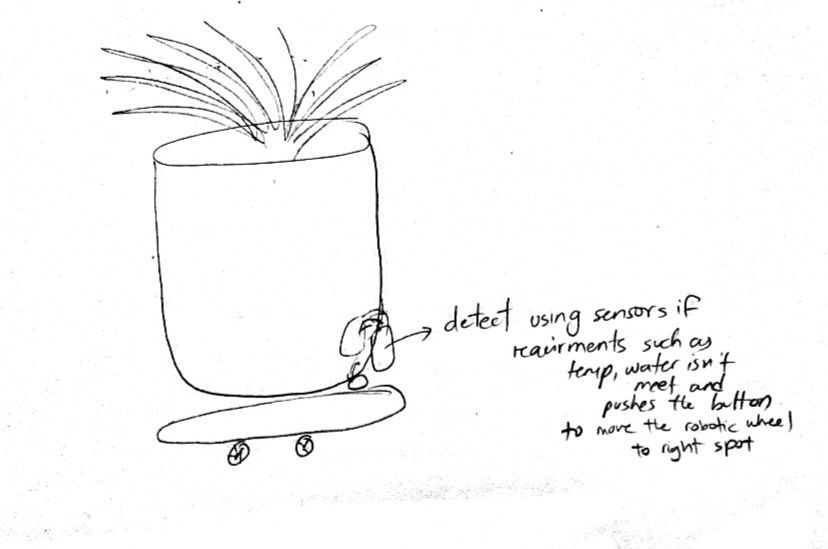 detect using sensors if
requirments such as
temp, water isn't
meet and
pushes the button
to move the robotic wheel
to right spot